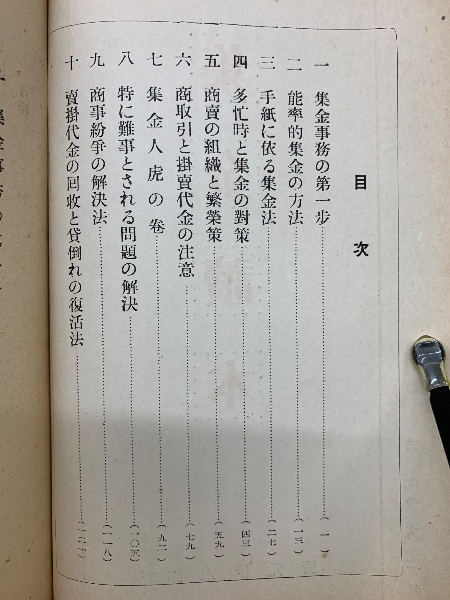 目次
一 集金事務の第一步……(一)
二 能率的集金の方法……(一三)
三 手紙に依る集金法……(二七)
四 多忙時と集金の對策……(四三)
五 商賣の組織と繁榮策……(五九)
六 商取引と掛賣代金の注意……(七九)
七 集金人虎の卷……(九一)
八 特に難事とされる問題の解決……(一〇五)
九 商事紛爭の解決法……(一一八)
十 賣掛代金の回收と貸倒れの復活法……(一二一)